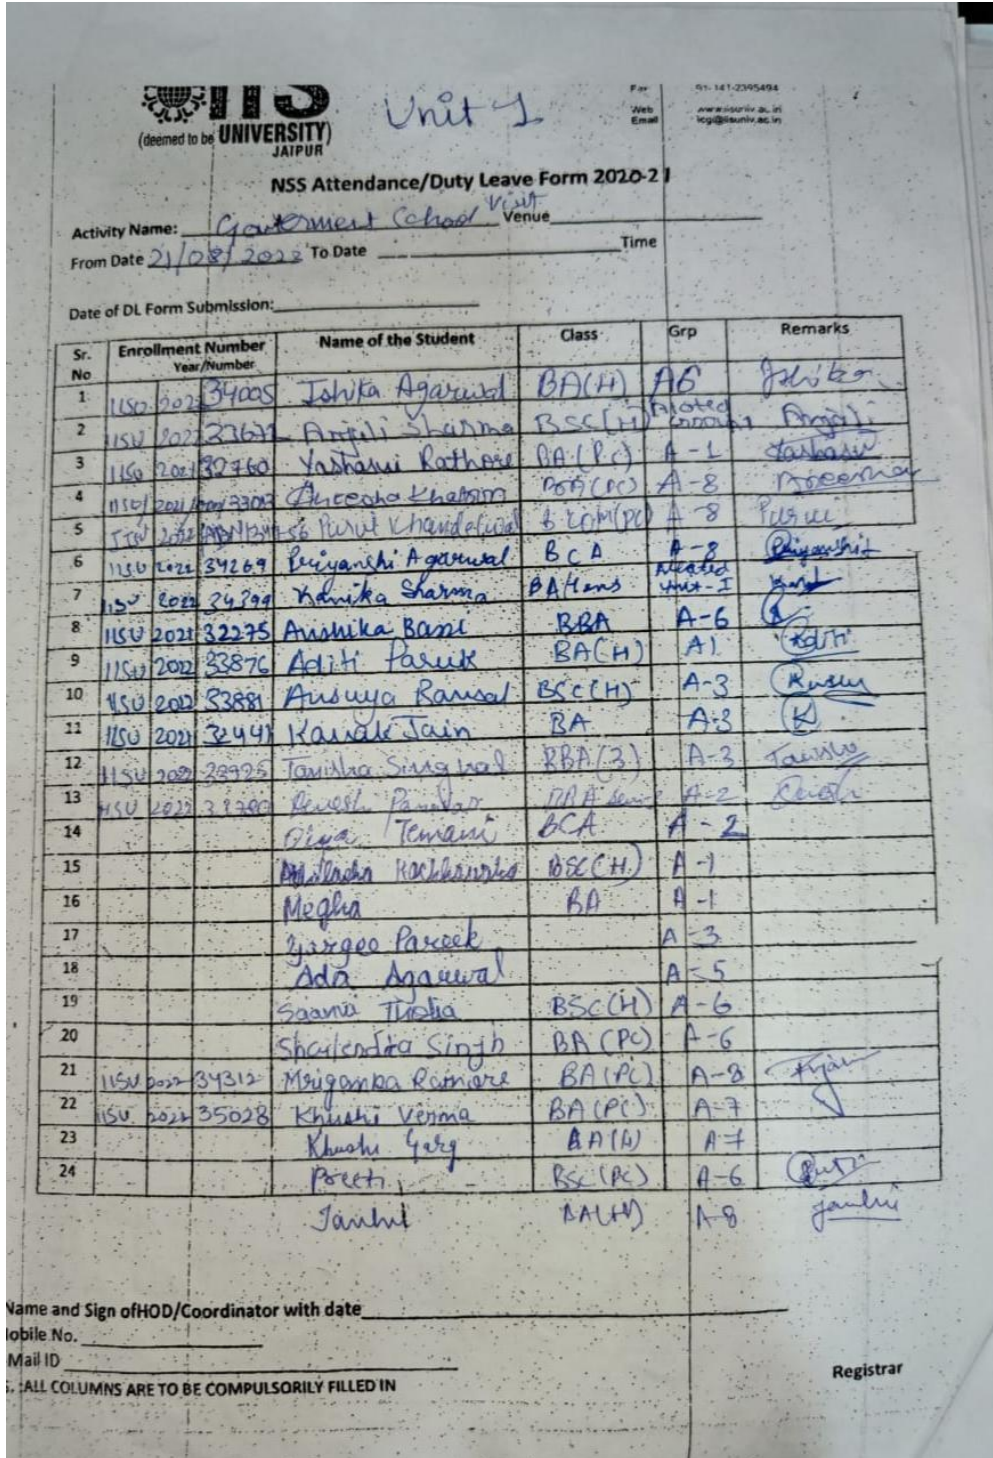 IIS
(deemed to be UNIVERSITY)
JAIPUR
Unit 1
Fax 91-141-2395494
Web www.iisuniv.ac.in
Email icg@iisuniv.ac.in
NSS Attendance/Duty Leave Form 2020-21
Activity Name: Goverment School Visit Venue
From Date 21/08/2022 To Date Time
Date of DL Form Submission:
Sr. No Enrollment Number Year/Number Name of the Student Class Grp Remarks
1 IISU 2022 34005 Ishika Agarwal BA(H) A6 Ishika
2 IISU 2022 Anjili Sharma BSC(H) Anjali
3 IISU 2021 32760 Yashasvi Rathore BA(Pc) A-1 Yashasvi
4 IISU 2021 Khatoon (PC) A-8
5 2022 Khandelwal B COM(PC) A-8
6 IISU 2022 34269 Priyanshi Agarwal BCA A-8 Priyanshi
7 IISU 2022 34399 Kanika Sharma BA Hons Unit-I
8 IISU 2021 32275 Anshika Bani BBA A-6
9 IISU 2022 33876 Aditi Paruk BA(H) A1 Aditi
10 IISU 2022 33881 Ansuya Bansal BSc(H) A-3
11 IISU 2021 32441 Kanak Jain BA A-3 K
12 IISU 2022 33925 Tanisha Singhal BBA(3) A-3
13 IISU 2022 A-2
14 Diya Temani BCA A-2
15 BSC(H.) A-1
16 Megha BA A-1
17 Gargee Pareek A-3
18 Agarwal A-5
19 BSc(H) A-6
20 Singh BA(PC) A-6
21 IISU 2022 34312 Mriganka Rathore BA(PC) A-8
22 IISU 2022 35028 Khushi Verma BA(PC) A-7
23 Khushi Garg BA(H) A-7
24 Preeti BSc(PC) A-6
Janhvi BA(H) A-8 Janhvi
Name and Sign ofHOD/Coordinator with date
Mobile No.
Mail ID
Registrar
:ALL COLUMNS ARE TO BE COMPULSORILY FILLED IN